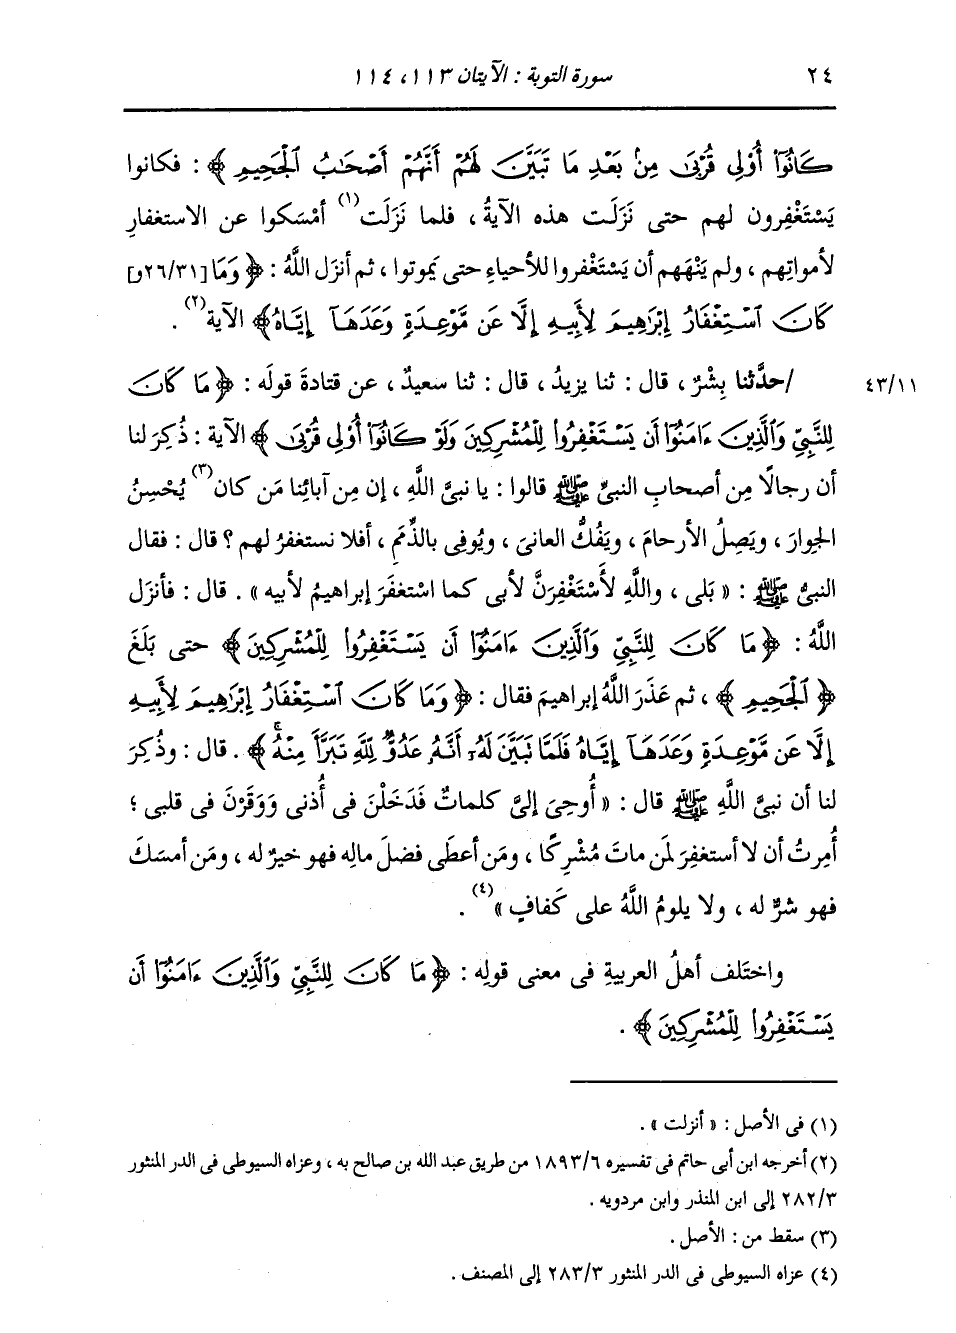 ٢٤ سورة التوبة : الآيتان ١١٣، ١١٤
كَانُوٓا۟ أُو۟لِى قُرْبَىٰ مِنۢ بَعْدِ مَا تَبَيَّنَ لَهُمْ أَنَّهُمْ أَصْحَٰبُ ٱلْجَحِيمِ ﴾ : فكانوا
يَسْتَغْفِرون لهم حتى نَزَلَت هذه الآيةُ ، فلما نَزَلَت(١) أمْسَكوا عن الاستغفارِ
لأمواتِهم ، ولم يَنْهَهم أن يَسْتَغفروا للأحياءِ حتى يَموتوا ، ثم أنزَل اللَّهُ : ﴿ وَمَا [٢٦/٣١و]
كَانَ ٱسْتِغْفَارُ إِبْرَٰهِيمَ لِأَبِيهِ إِلَّا عَن مَّوْعِدَةٍ وَعَدَهَآ إِيَّاهُ﴾ الآية(٢) .
٤٣/١١ /حدَّثنا بِشْرٌ ، قال : ثنا يزيدُ ، قال : ثنا سعيدٌ ، عن قتادةَ قولَه : ﴿ مَا كَانَ
لِلنَّبِىِّ وَٱلَّذِينَ ءَامَنُوٓا۟ أَن يَسْتَغْفِرُوا۟ لِلْمُشْرِكِينَ وَلَوْ كَانُوٓا۟ أُو۟لِى قُرْبَىٰ ﴾ الآية : ذُكِرَ لنا
أن رجالًا مِن أصحابِ النبىِّ ﷺ قالوا : يا نبىَّ اللَّهِ ، إن مِن آبائِنا مَن كان(٣) يُحْسِنُ
الجِوارَ ، ويَصِلُ الأرحامَ ، ويَفُكُّ العانىَ ، ويُوفِى بالذِّمَمِ ، أفلا نستغفرُ لهم ؟ قال : فقال
النبىُّ ﷺ : « بَلى ، واللَّهِ لأَسْتَغْفِرَنَّ لأبى كما استغفَرَ إبراهيمُ لأبيه » . قال : فأنزَل
اللَّهُ : ﴿ مَا كَانَ لِلنَّبِىِّ وَٱلَّذِينَ ءَامَنُوٓا۟ أَن يَسْتَغْفِرُوا۟ لِلْمُشْرِكِينَ ﴾ حتى بَلَغَ
﴿ ٱلْجَحِيمِ ﴾ ، ثم عَذَرَ اللَّهُ إبراهيمَ فقال : ﴿ وَمَا كَانَ ٱسْتِغْفَارُ إِبْرَٰهِيمَ لِأَبِيهِ
إِلَّا عَن مَّوْعِدَةٍ وَعَدَهَآ إِيَّاهُ فَلَمَّا تَبَيَّنَ لَهُۥٓ أَنَّهُۥ عَدُوٌّ لِّلَّهِ تَبَرَّأَ مِنْهُ ۚ﴾ . قال : وذُكِرَ
لنا أن نبىَّ اللَّهِ ﷺ قال : « أُوحِىَ إلىَّ كلماتٌ فَدَخَلْنَ فى أُذنى ووَقَرْنَ فى قلبى ؛
أُمِرتُ أن لا أستغفِرَ لمن ماتَ مُشْرِكًا ، ومَن أعطَى فضلَ مالِه فهو خيرٌ له ، ومَن أمسَكَ
فهو شرٌّ له ، ولا يلومُ اللَّهُ على كَفافٍ »(٤) .
واختَلف أهلُ العربيةِ فى معنى قولِه : ﴿ مَا كَانَ لِلنَّبِىِّ وَٱلَّذِينَ ءَامَنُوٓا۟ أَن
يَسْتَغْفِرُوا۟ لِلْمُشْرِكِينَ ﴾ .
(١) فى الأصل : « أنزلت » .
(٢) أخرجه ابن أبى حاتم فى تفسيره ١٨٩٣/٦ من طريق عبد الله بن صالح به ، وعزاه السيوطى فى الدر المنثور
٢٨٢/٣ إلى ابن المنذر وابن مردويه .
(٣) سقط من : الأصل .
(٤) عزاه السيوطى فى الدر المنثور ٢٨٣/٣ إلى المصنف .